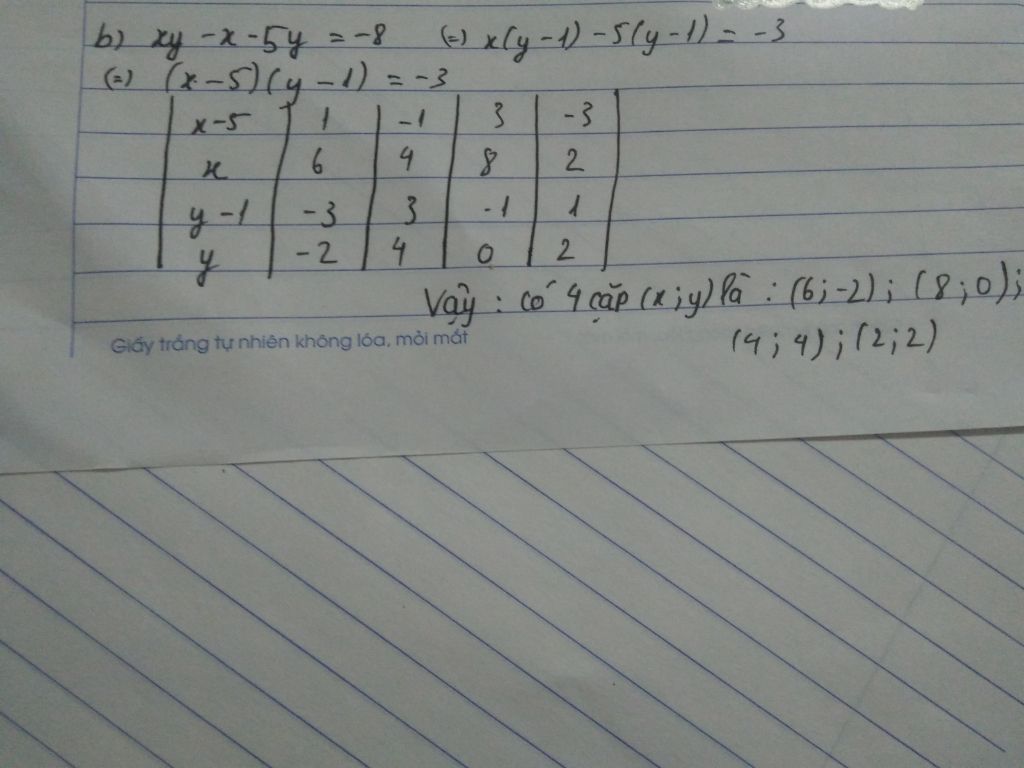 b) xy - x - 5y = -8 (=) x(y-1) - 5(y-1) = -3
(=) (x-5)(y-1) = -3
x-5 | 1 | -1 | 3 | -3
x | 6 | 4 | 8 | 2
y-1 | -3 | 3 | -1 | 1
y | -2 | 4 | 0 | 2
Vậy : có 4 cặp (x;y) là : (6;-2); (8;0);
(4;4); (2;2)
Giấy trắng tự nhiên không lóa, mỏi mắt